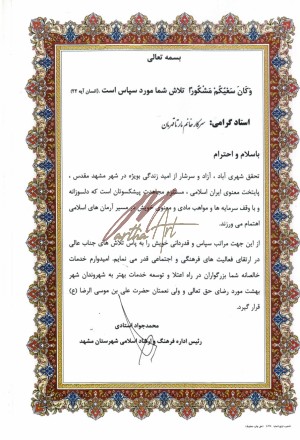 بسمه تعالی
وَكَانَ سَعْيُكُمْ مَشْكُورًا تلاش شما مورد سپاس است. (انسان آیه ۲۲)
استاد گرامی: سرکار خانم مارتا قهرمان
باسلام و احترام
تحقق شهری آباد، آزاد و سرشار از امید زندگی بویژه در شهر مشهد مقدس،
پایتخت معنوی ایران اسلامی، مجاهدت پیشکسوتان است که دلسوزانه
و با وقف سرمایه ها و مواهب مادی و معنوی خویش در مسیر آرمان های اسلامی
اهتمام می ورزند.
از این جهت مراتب سپاس و قدردانی خویش را به پاس تلاش های جناب عالی
در ارتقای فعالیت های فرهنگی و اجتماعی قدر می نهایم. امیدوارم خدمات
خالصانه شما بزرگواران در راه اعتلا و توسعه خدمات بهتر به شهروندان شهر
بهشت مورد رضای حق تعالی و ولی نعمتان حضرت علی بن موسی الرضا (ع)
قرار گیرد.
Martha Art
محمدجواد استادی
رئیس اداره فرهنگ و ارشاد اسلامی شهرستان مشهد